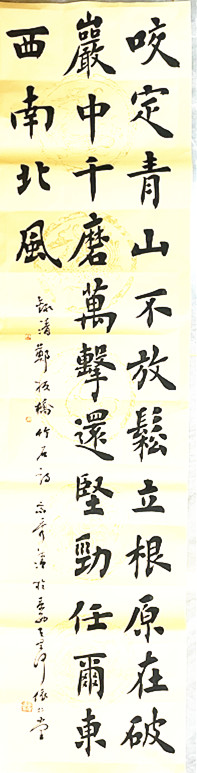 咬定青山不放鬆立根原在破
巖中千磨萬擊還堅勁任爾東
西南北風
錄清鄭板橋竹石詩